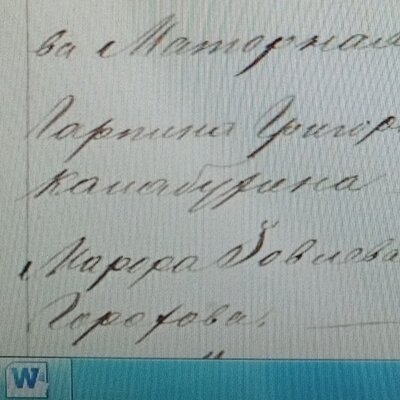 ва Маторная
Гарпина Григор
Калабухина
Марфа Іовлева
Горохова.
W